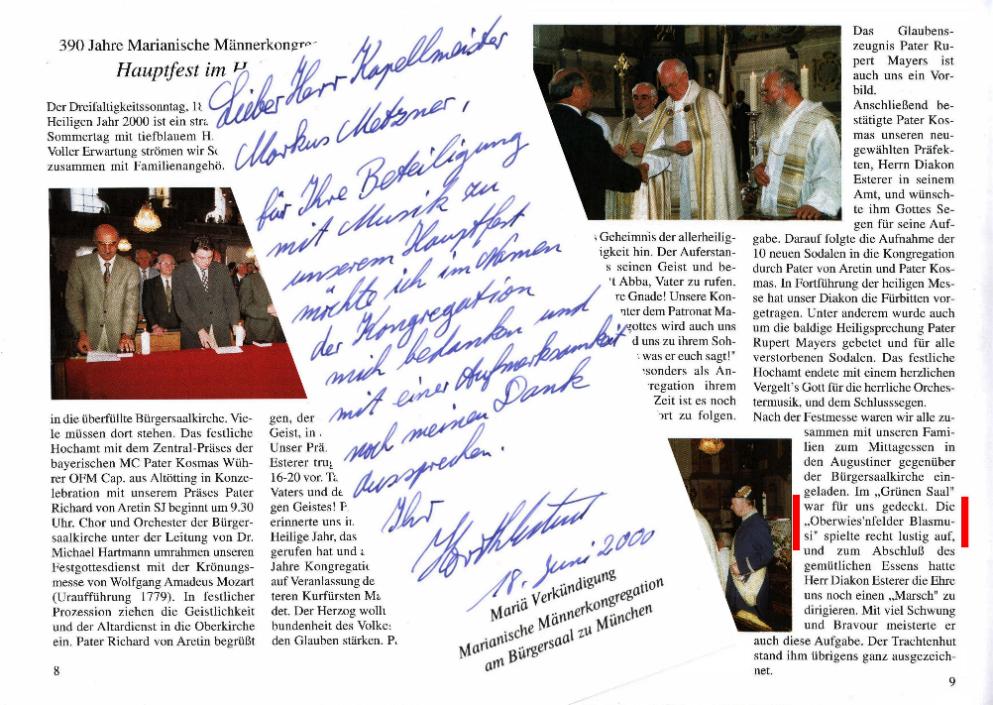 390 Jahre Marianische Männerkongre
Hauptfest im
Der Dreifaltigkeitssonntag,
Heiligen Jahr 2000 ist ein
Sommertag mit tiefblauem H.
Voller Erwartung strömen wir
zusammen mit Familienangehö.
in die überfüllte Bürgersaalkirche. Vie-
le müssen dort stehen. Das festliche
Hochamt mit dem Zentral-Präses der
bayerischen MC Pater Kosmas Wüh-
rer OFM Cap. aus Altötting in Konze-
lebration mit unserem Präses Pater
Richard von Aretin SJ beginnt um 9.30
Uhr. Chor und Orchester der Bürger-
saalkirche unter der Leitung von Dr.
Michael Hartmann umrahmen unseren
Festgottesdienst mit der Krönungs-
messe von Wolfgang Amadeus Mozart
(Uraufführung 1779). In festlicher
Prozession ziehen die Geistlichkeit
und der Altardienst in die Oberkirche
ein. Pater Richard von Aretin begrüßt
8
gen, der
Geist, in
Unser Prä
Esterer trug
16-20 vor.
Vaters und de
gen Geistes!
erinnerte uns
Heilige Jahr, das
gerufen hat und
Jahre Kongregati
auf Veranlassung de
teren Kurfürsten
det. Der Herzog wollt
bundenheit des Volke
den Glauben stärken. P.
Lieber Herr Kapellmeister
Markus Metzner,
für Ihre Beteiligung
mit Musik zu
unserem Hauptfest
möchte ich im Namen
der Kongregation
mich bedanken und
mit einer Aufmerksamkeit
noch meinen Dank
aussprechen.
Ihr
18. Juni 2000
Mariä Verkündigung
Marianische Männerkongregation
am Bürgersaal zu München
Geheimnis der allerheilig-
igkeit hin. Der Auferstan-
s seinen Geist und be-
t Abba, Vater zu rufen.
re Gnade! Unsere Kon-
nter dem Patronat Ma-
gottes wird auch uns
d uns zu ihrem Soh-
was er euch sagt!"
sonders als An-
regation ihrem
Zeit ist es noch
ort zu folgen.
Das Glaubens-
zeugnis Pater Ru-
pert Mayers ist
auch uns ein Vor-
bild.
Anschließend be-
stätigte Pater Kos-
mas unseren neu-
gewählten Präfek-
ten, Herrn Diakon
Esterer in seinem
Amt, und wünsch-
te ihm Gottes Se-
gen für seine Auf-
gabe. Darauf folgte die Aufnahme der
10 neuen Sodalen in die Kongregation
durch Pater von Aretin und Pater Kos-
mas. In Fortführung der heiligen Mes-
se hat unser Diakon die Fürbitten vor-
getragen. Unter anderem wurde auch
um die baldige Heiligsprechung Pater
Rupert Mayers gebetet und für alle
verstorbenen Sodalen. Das festliche
Hochamt endete mit einem herzlichen
Vergelt's Gott für die herrliche Orches-
termusik, und dem Schlusssegen.
Nach der Festmesse waren wir alle zu-
sammen mit unseren Fami-
lien zum Mittagessen in
den Augustiner gegenüber
der Bürgersaalkirche ein-
geladen. Im „Grünen Saal"
war für uns gedeckt. Die
„Oberwies'nfelder Blasmu-
si" spielte recht lustig auf,
und zum Abschluß des
gemütlichen Essens hatte
Herr Diakon Esterer die Ehre
uns noch einen „Marsch" zu
dirigieren. Mit viel Schwung
und Bravour meisterte er
auch diese Aufgabe. Der Trachtenhut
stand ihm übrigens ganz ausgezeich-
net.
9